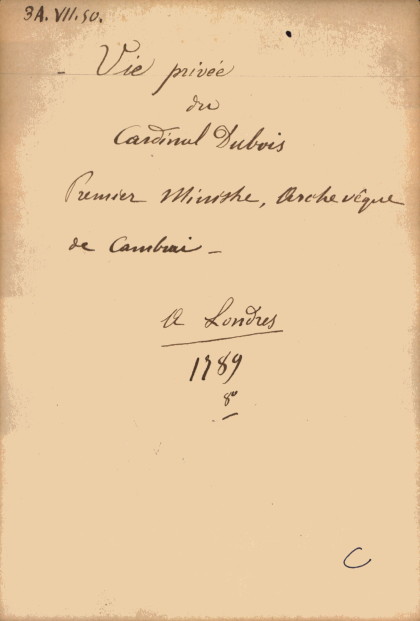 3A.VII.50.
Vie privée
du
Cardinal Dubois
Premier Ministre, Archevêque
de Cambrai -
A Londres
1789
8º
C